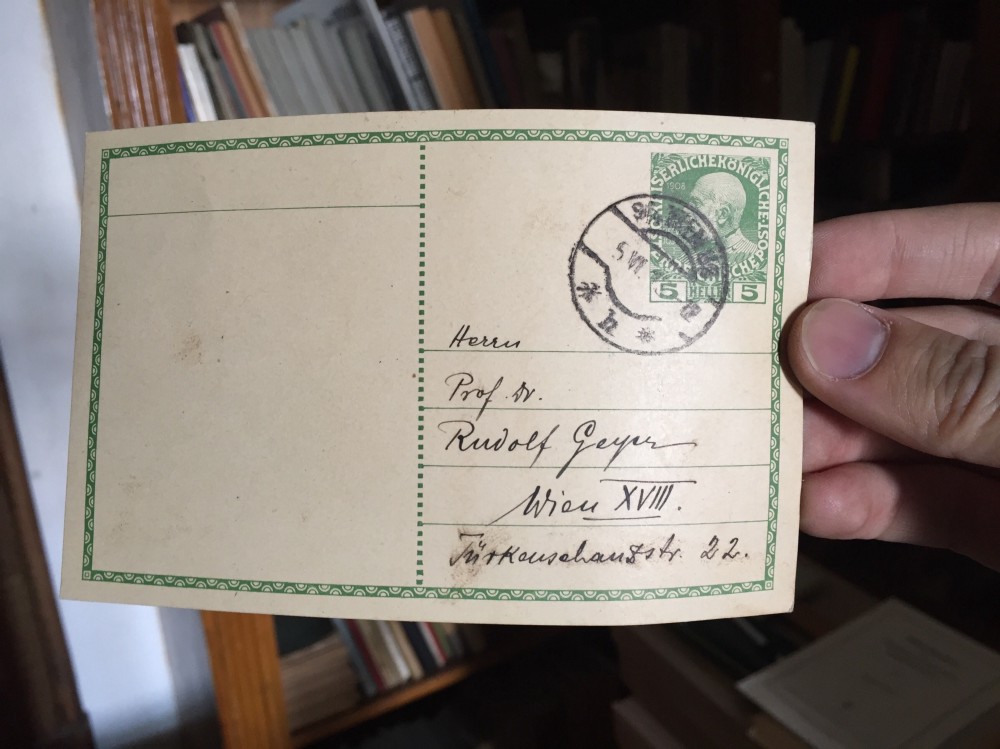 SERLICHEKÖNIGLICHE
POST
1908
5 HELLER 5
5 VI
* b *
Herrn
Prof. Dr.
Rudolf Geyer
Wien XVIII.
Türkenschanzstr. 22.